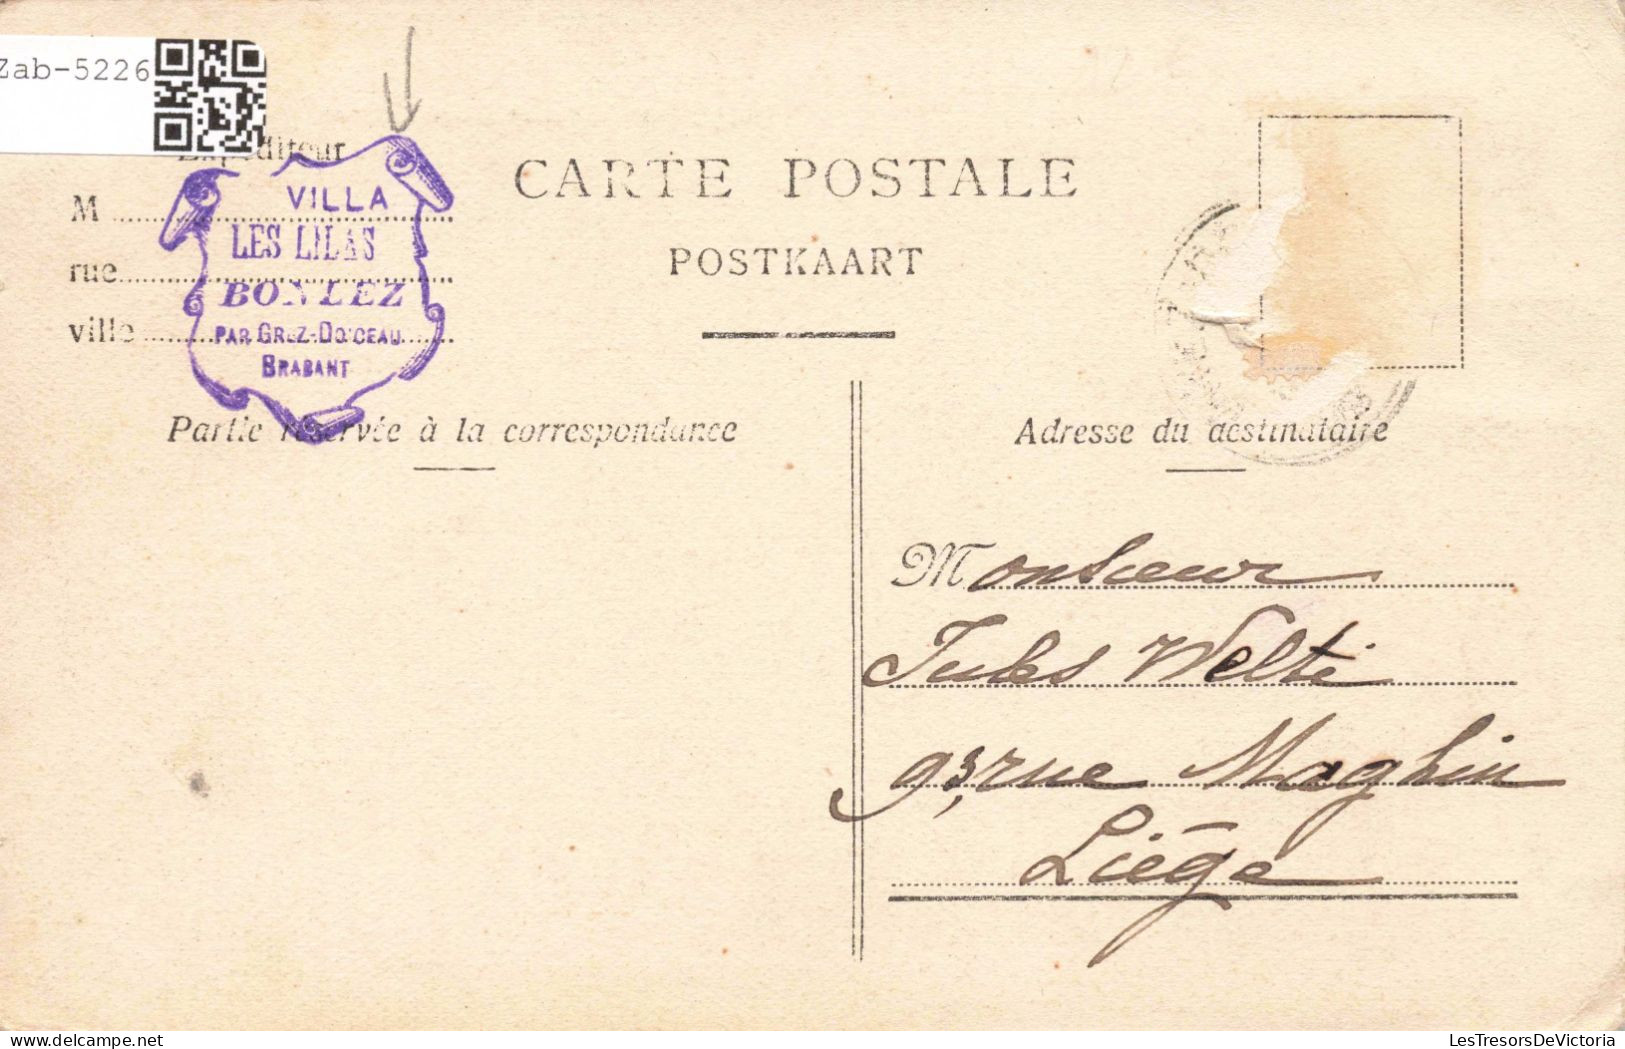 Zab-5226
Expéditeur
CARTE POSTALE
POSTKAART
M
rue
ville
VILLA
LES LILAS
BONLEZ
PAR GREZ-DOICEAU
BRABANT
Partie réservée à la correspondance
Adresse du destinataire
Monsieur
Jules Welti
93, rue Maghin
Liége
LesTresorsDeVictoria